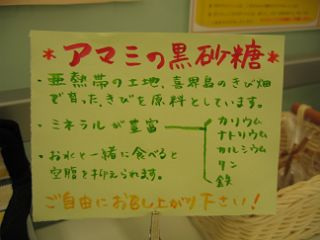 * アマミの黒砂糖 *
・亜熱帯の土地、喜界島のきび畑
で育った、きびを原料としています。
・ミネラルが豊富
カリウム
ナトリウム
カルシウム
リン
鉄
・お水と一緒に食べると
空腹を抑えられます。
ご自由にお召し上がり下さい!